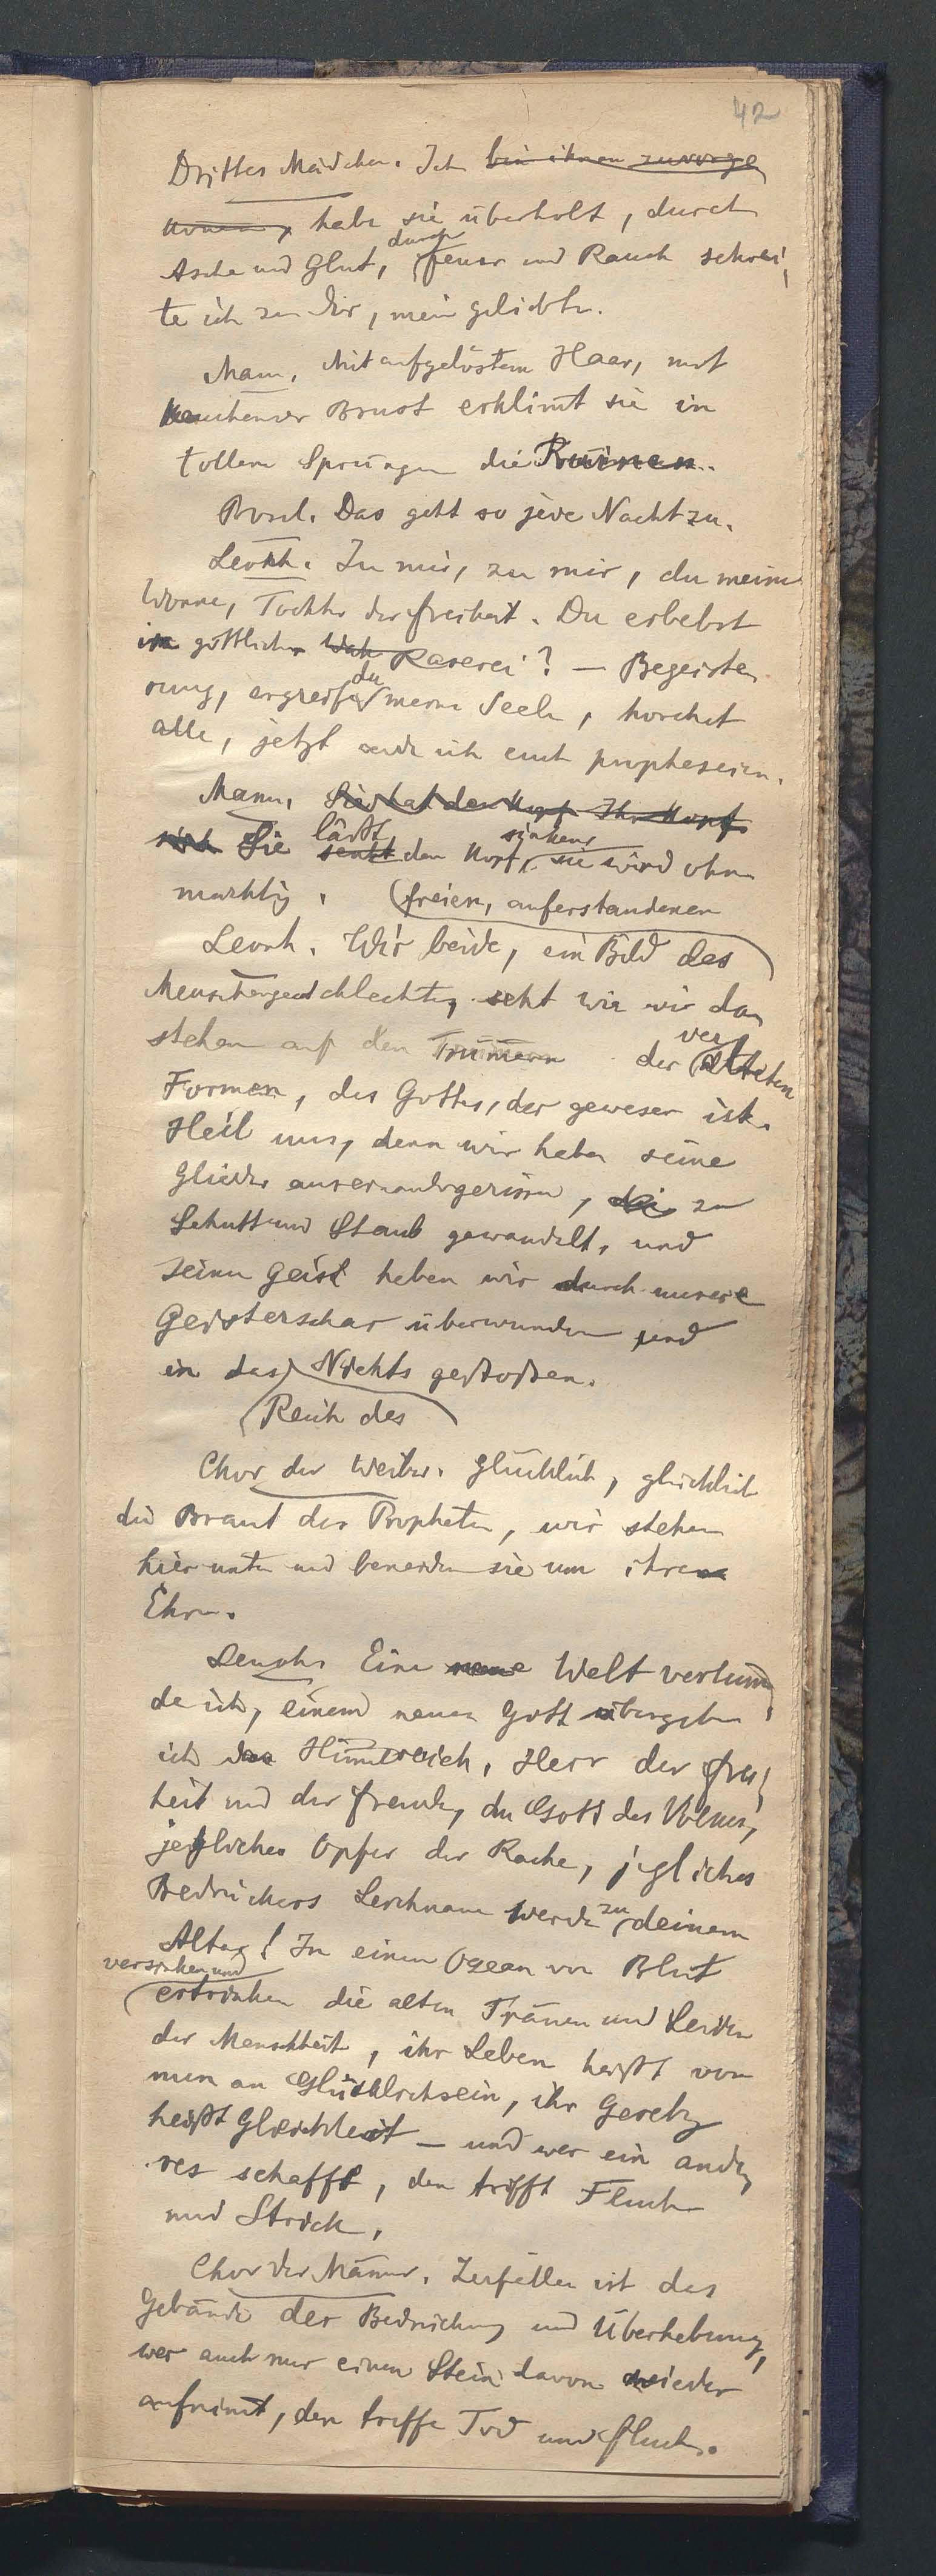 42
Drittes Mädchen. Ich bin ihnen zuvorge
kommen, habe sie überholt, durch
Asche und Glut, durch Feuer und Rauch schrei
te ich zu dir, mein geliebter.
Mann. Mit aufgelöstem Haar, mit
keuchender Brust erklimt sie in
tollen Sprüngen die Ruinen.
Das geht so jede Nacht zu.
Leonh. Zu mir, zu mir, du meine
Wonne, Tochter der Freiheit. Du erbebst
in göttlicher Wah Raserei? — Begeiste
rung, ergreife du meine Seele, horchet
alle, jetzt werde ich euch prophezeien.
Mann. Sie hat den Kopf Ihr Kopf
sink Sie senkt läßt den Kopf sinken, sie wird ohn
mächtig. (freien, auferstandenen
Leonh. Wir beide, ein Bild des
Menschengeschlechtes, seht wie wir da
stehen auf den Trümern der veralteten
Formen, des Gottes, der gewesen ist.
Heil uns, denn wir haben seine
Glieder auseinandergerissen, zu
Schutt und Staub gewandelt, und
seinen Geist haben wir durch unsere
Geisterschar überwunden und
in das Nichts gestoßen.
(Reich des
Chor der Weiber. Glücklich, glücklich
die Braut des Propheten, wir stehen
hier unten und beneiden sie um ihre
Ehre.
Leonh. Eine neue Welt verkün
de ich, einem neuen Gott übergebe
ich das Himelreich, Herr der Frei
heit und der Freude, du Gott des Volkes,
jegliches Opfer der Rache, jegliches
Bedrückers Leichnam werde zu deinem
Altar! In einem Ozean von Blut
versinken und
ertrinken die alten Tränen und Leiden
der Menschheit, ihr Leben heißt von
nun an Glücklichsein, ihr Gesetz
heißt Gleichheit — und wer ein ande
res schafft, den trifft Fluch
und Strick.
Chor der Männer. Zerfallen ist das
Gebäude der Bedrückung und Überhebung,
wer auch nur einen Stein davon wieder
aufnimt, den treffe Tod und Fluch.